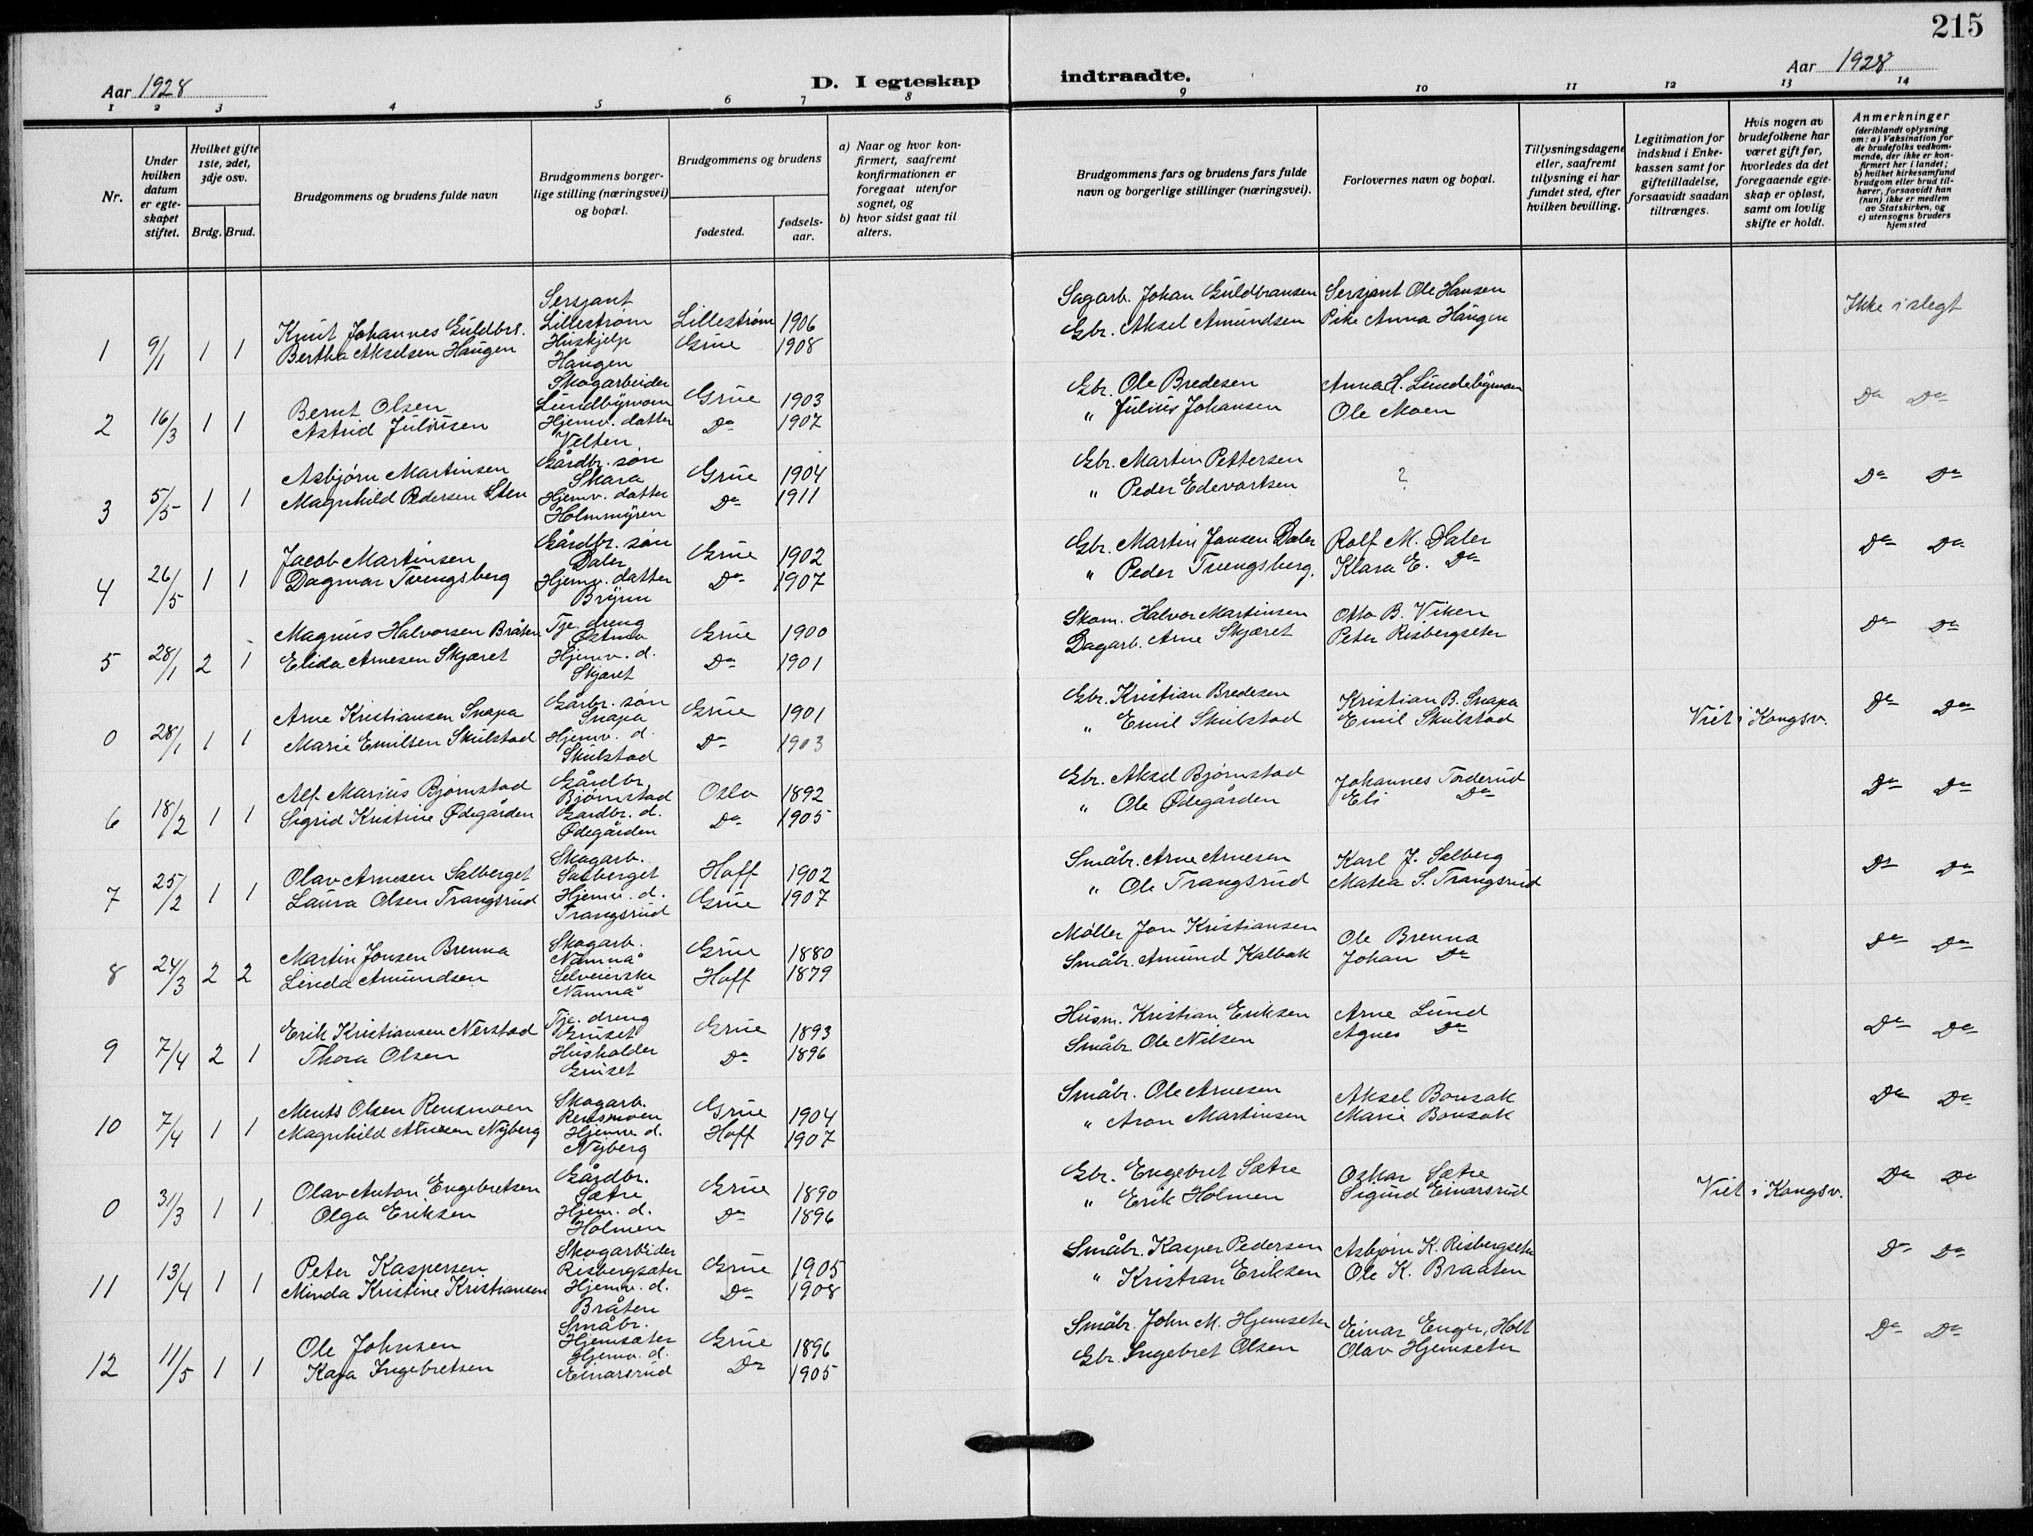 215
Aar 1928
D. I egteskap indtraadte.
Aar 1928
1 2 3 4 5 6 7 8 9 10 11 12 13 14
Nr.
Under hvilken datum er egteskapet stiftet.
Hvilket gifte 1ste, 2det, 3dje osv.
Brdg. Brud.
Brudgommens og brudens fulde navn
Brudgommens borgerlige stilling (næringsvei) og bopæl.
Brudgommens og brudens
fødested.
fødselsaar.
a) Naar og hvor konfirmert, saafremt konfirmationen er foregaat utenfor sognet, og
b) hvor sidst gaat til alters.
Brudgommens fars og brudens fars fulde navn og borgerlige stillinger (næringsvei).
Forlovernes navn og bopæl.
Tillysningsdagene eller, saafremt tillysning ei har fundet sted, efter hvilken bevilling.
Legitimation for indskud i Enkekassen samt for giftetilladelse, forsaavidt saadan tiltrænges.
Hvis nogen av brudefolkene har været gift før, hvorledes da det foregaaende egteskap er opløst, samt om lovlig skifte er holdt.
Anmerkninger
(deriblandt oplysning om: a) Vaksination for de brudefolks vedkommende, der ikke er konfirmert her i landet; b) hvilket kirkesamfund brudgom eller brud tilhører, forsaavidt han (hun) ikke er medlem av Statskirken, og c) utensogns bruders hjemsted
1 9/1 1 1
Knut Johannes Guldbrs.
Bertha Akselsen Haugen
Sersjant
Lillestrøm
Huskjelp
Haugen
Lillestrøm 1906
Grue 1908
Sagarb. Johan Guldbransen
Gbr. Aksel Amundsen
Sersjant Ole Hansen
Pike Anna Haugen
Ikke i slegt
2 16/3 1 1
Bernt Olsen
Astrid Juliusen
Skogarbeider
Lundbymoen
Hjemv. datter
Velten
Grue 1903
Do 1907
Gbr. Ole Bredesen
" Julius Johansen
Anna H. Lundebymoen
Ole Moen
Do Do
3 5/5 1 1
Asbjørn Martinsen
Magnhild Pedersen Sten
Gårdbr. søn
Skara
Hjemv. datter
Holmmyren
Grue 1904
Do 1911
Gbr. Martin Pettersen
" Peder Edevartsen
?
Do Do
4 26/5 1 1
Jacob Martinsen
Dagmar Tvengsberg
Gårdbr. søn
Daler
Hjemv. datter
Bryun
Grue 1902
Do 1907
Gbr. Martin Jansen Daler
" Peder Tvengsberg.
Rolf M. Daler
Klara E. Do
Do Do
5 28/1 2 1
Magnus Halvorsen Bråten
Elida Arnesen Skjæret
Tje. dreng
Østmo
Hjemv. d.
Skjæret
Grue 1900
Do 1901
Skom. Halvor Martinsen
Dagarb. Arne Skjæret
Otto B. Viken
Peter Risbergseter
Do Do
0 28/1 1 1
Arne Kristiansen Snapa
Marie Emilsen Skulstad
Gårbr. søn
Snapa
Hjemv. d.
Skulstad
Grue 1901
Do 1903
Gbr. Kristian Bredesen
" Emil Skulstad
Kristian B. Snapa
Emil Skulstad
Viet i Kongsv.
Do Do
6 18/2 1 1
Alf Marius Bjørnstad
Sigrid Kristine Ødegården
Gårdbr
Bjørnstad
Gardbr. d.
Ødegården
Oslo 1892
Do 1905
Gbr. Aksel Bjørnstad
" Ole Ødegården
Johannes Torderud
Eli Do
Do Do
7 25/2 1 1
Olav Arnesen Salberget
Laura Olsen Trangsrud
Skogarb.
Salberget
Hjemv. d.
Trangsrud
Hoff 1902
Grue 1907
Småbr. Arne Arnesen
" Ole Trangsrud
Karl J. Salberg
Matea S. Trangsrud
Do Do
8 24/3 2 2
Martin Jonsen Brenna
Linda Amundsen
Skogarb.
Namnå
Selveierske
Namnå
Grue 1880
Hoff 1879
Møller Jon Kristiansen
Småbr. Amund Kalbak
Ole Brenna
Johan Do
Do Do
9 7/4 2 1
Erik Kristiansen Nerstad
Thora Olsen
Tje. dreng
Gruset
Husholder
Gruset
Grue 1893
Do 1896
Husm. Kristian Eriksen
Småbr. Ole Nilsen
Arne Lund
Agnes Do
Do Do
10 7/4 1 1
Ments Olsen Rensmoen
Magnhild Arnesen Nyberg
Skogarb.
Rensmoen
Hjemv d.
Nyberg
Grue 1904
Hoff 1907
Småbr. Ole Arnesen
" Aron Martinsen
Aksel Bonsak
Marie Bonsak
Do Do
0 31/3 1 1
Olav Anton Engebretsen
Olga Eriksen
Gårdbr.
Sætre
Hjem. d.
Holmen
Grue 1890
Do 1896
Gbr. Engebret Sætre
" Erik Holmen
Oskar Sætre
Sigurd Einarsrud
Viet i Kongsv.
Do Do
11 13/4 1 1
Peter Kaspersen
Minda Kristine Kristiansen
Skogarbeider
Risbergsæter
Hjemv. d.
Bråten
Grue 1905
Do 1908
Småbr. Kasper Pedersen
" Kristian Eriksen
Asbjørn K. Risbergseter
Ole K. Braaten
Do Do
12 11/5 1 1
Ole Johnsen
Kaja Ingebretsen
Småbr.
Hjemsæter
Hjemv. d.
Einarsrud
Grue 1896
Do 1905
Småbr. John M. Hjemseter
Gbr. Ingebret Olsen
Einar Enger, Holt
Olav Hjemseter
Do Do